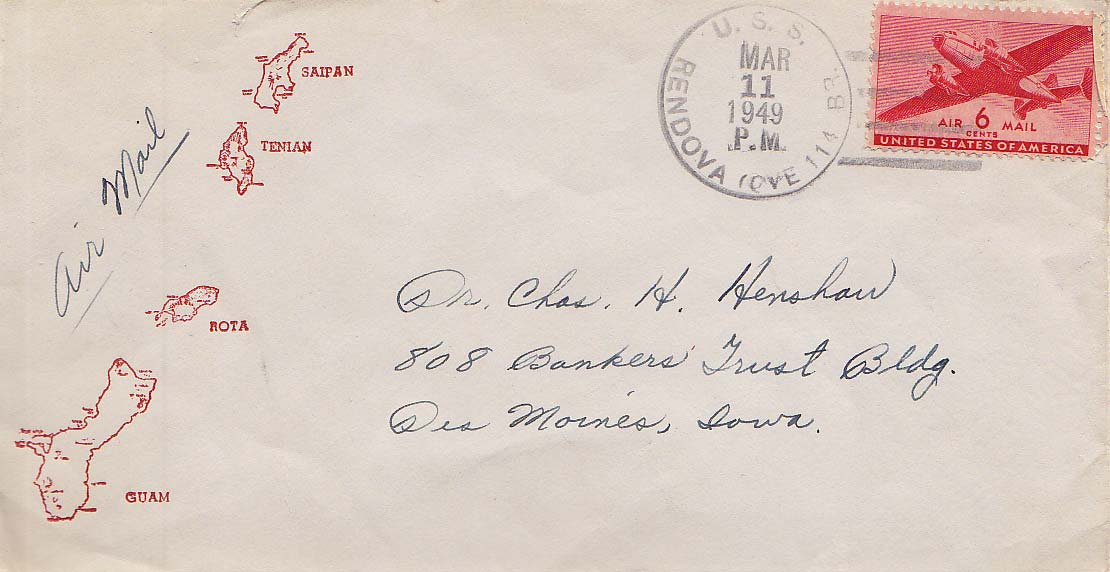 SAIPAN
TENIAN
Air Mail
ROTA
GUAM
U.S.S. RENDOVA (CVE 114 BR.
MAR
11
1949
P.M.
AIR 6 MAIL
CENTS
UNITED STATES OF AMERICA
Dr. Chas. H. Henshaw
808 Bankers Trust Bldg.
Des Moines, Iowa.